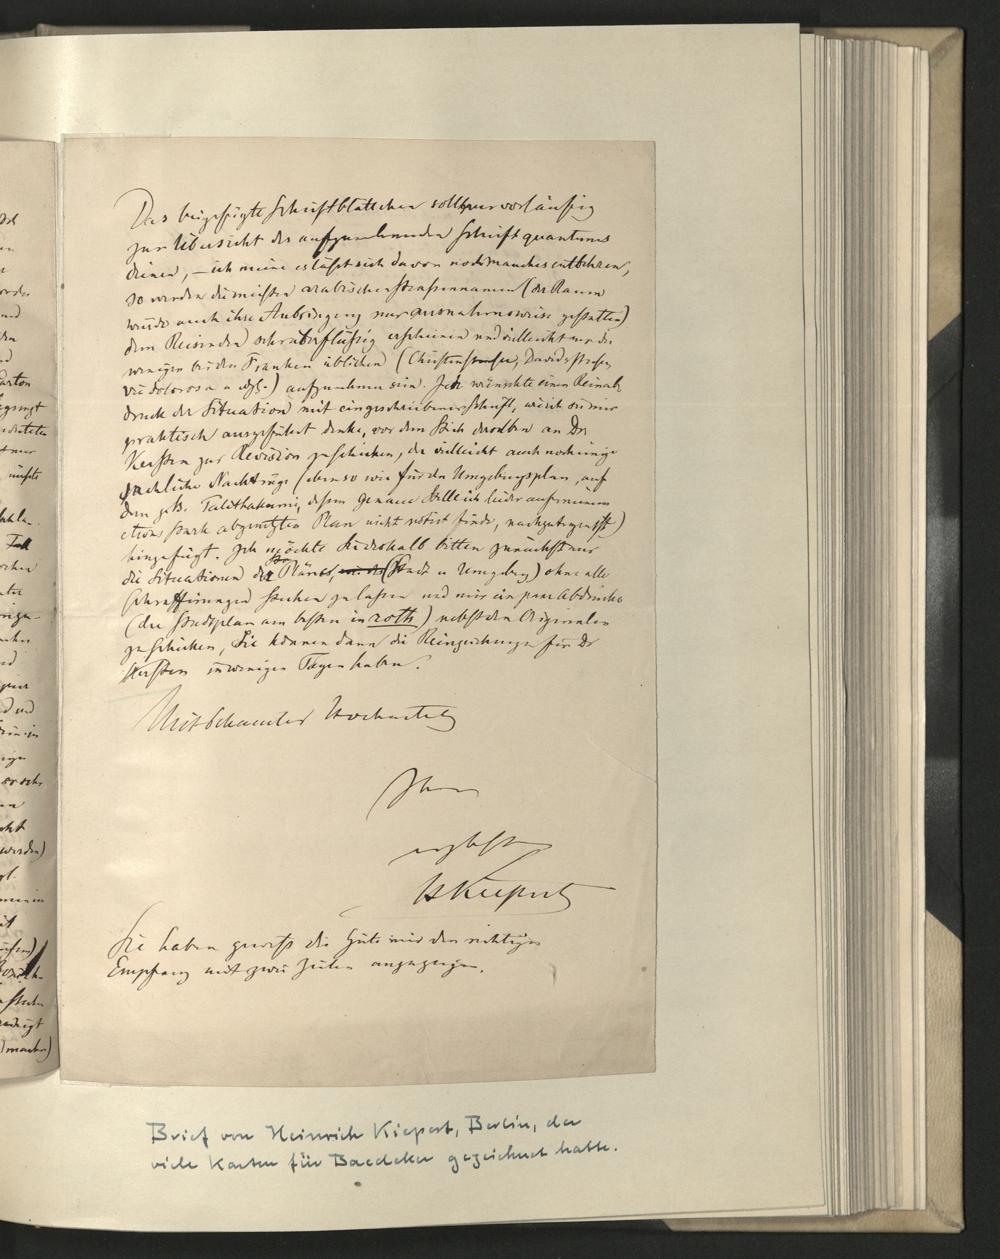 Das beigefügte Schriftblättchen soll nur vorläufig
zur Übersicht des aufzunehmenden Schriftquantums
dienen, – ich meine es läßt sich davon noch manches entbehren,
so werden die meisten arabischen Straßennamen (der Raum
würde auch ihre Anbringung nur ausnahmsweise gestatten)
dem Reisenden sehr überflüssig erscheinen und vielleicht nur die
wenigen bei den Franken üblichen (Christenstraße, Davidsstraße,
via dolorosa u dgl.) aufzunehmen sein. Ich wünschte einen Reinab
druck der Situation mit eingeschriebener Schrift, wie ich sie mir
praktisch ausgeführt denke, vor dem Stich derselben an Dr
Kersten zur Revision zu schicken, der vielleicht auch noch einige
sachliche Nachträge (ebenso wie für den Umgebungsplan, auf
dem z.B. Talithakumi, dessen genaue Stelle ich leider auf meinem
etwas stark abgenutzten Plan nicht notirt finde, nachzutragen ist)
hinzufügt. Ich möchte Sie deshalb bitten zunächst nur
die Situationen der Pläne (Stadt u Umgebung) ohne alle
Schraffirungen stechen zu lassen und mir ein paar Abdrücke
(den Stadtplan am besten in roth) nebst den Originalen
zu schicken, Sie können dann die Reinzeichnung für Dr
Kersten in wenigen Tagen haben.
Mit bekannter Hochachtung
Ihr
ergebenster
H Kiepert
Sie haben gewiss die Güte mir den richtigen
Empfang mit zwei Zeilen anzuzeigen.
Brief von Heinrich Kiepert, Berlin, der
viele Karten für Baedeker gezeichnet hatte.